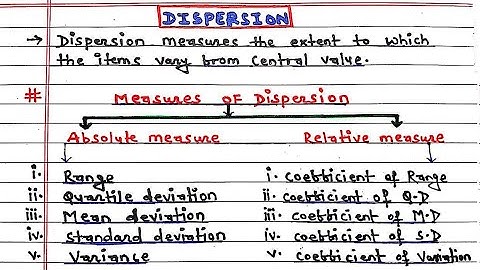 DISPERSION
→ Dispersion measures the extent to which
the items vary from central value.
# Measures of Dispersion
Absolute measure Relative measure
i. Range i. coefficient of Range
ii. Quartile deviation ii. coefficient of Q.D
iii. Mean deviation iii. coefficient of M.D
iv. Standard deviation iv. coefficient of S.D
v. Variance v. Coefficient of Variation